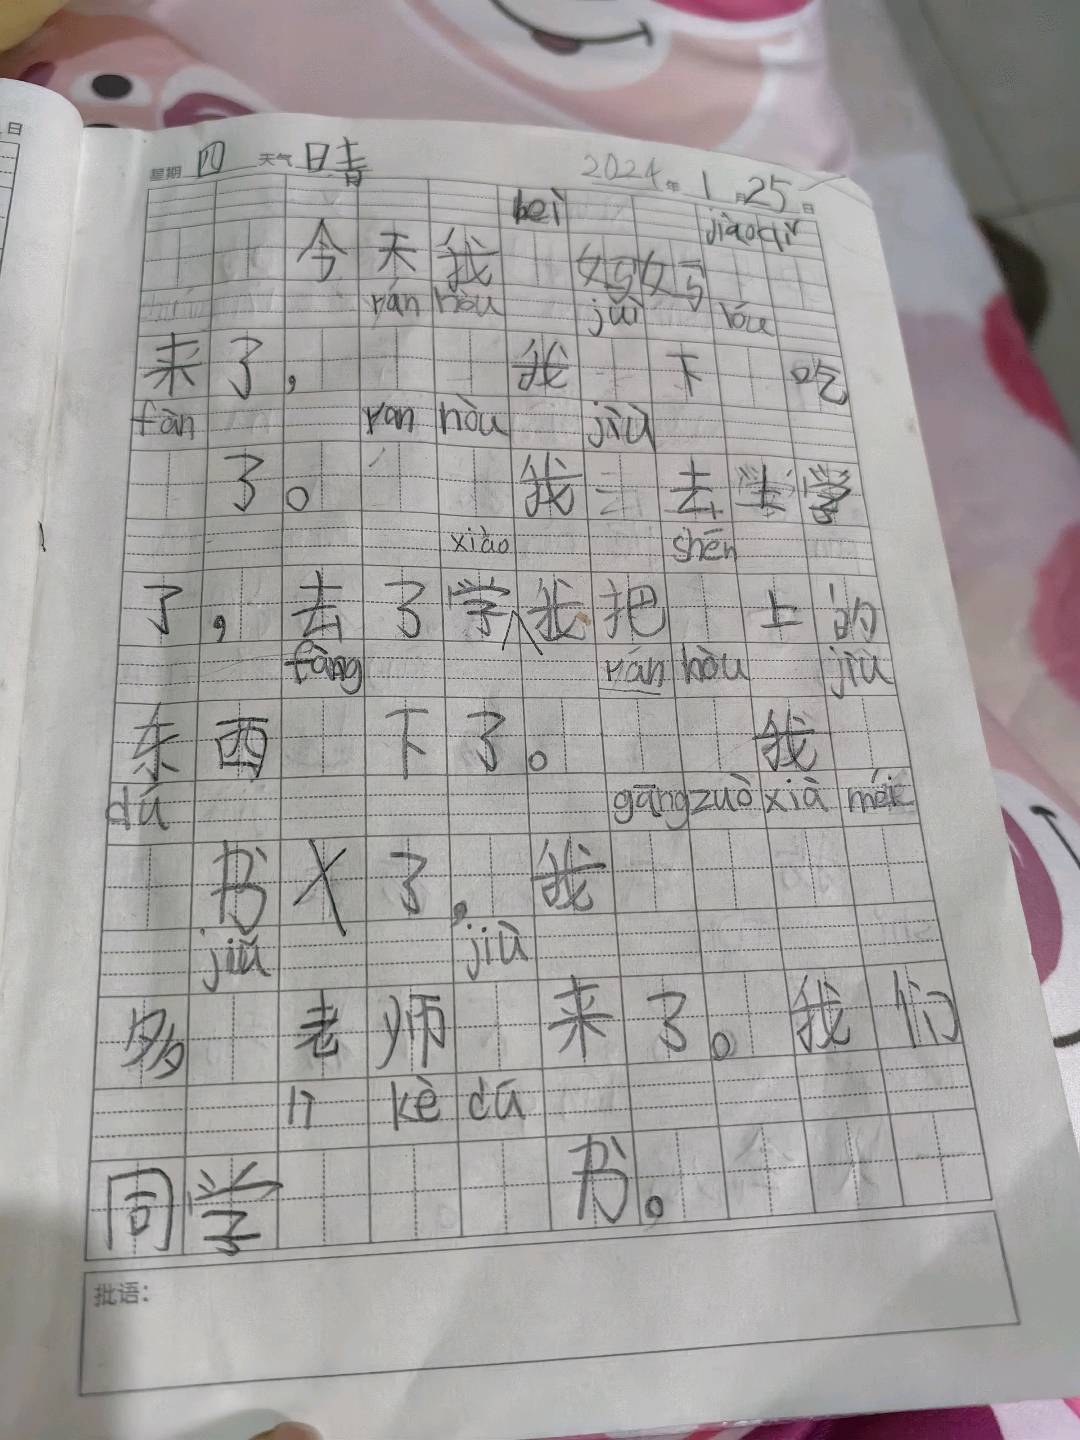 日
星期 四 天气 晴 2024年 1月25日
bèi jiàoqǐ
今天我 妈妈
rán hòu juì lóu
来了， 我 下 吃
fàn ran hòu jiù
了。 我 去学
xiào shēn
了，去了学 我把 上的
fàng rán hòu jiù
东西 下了。 我
dú gāng zuò xià méi
书 了，我
jiǔ jiù
多 老师 来了。我们
kè dú
同学 书。
批语：